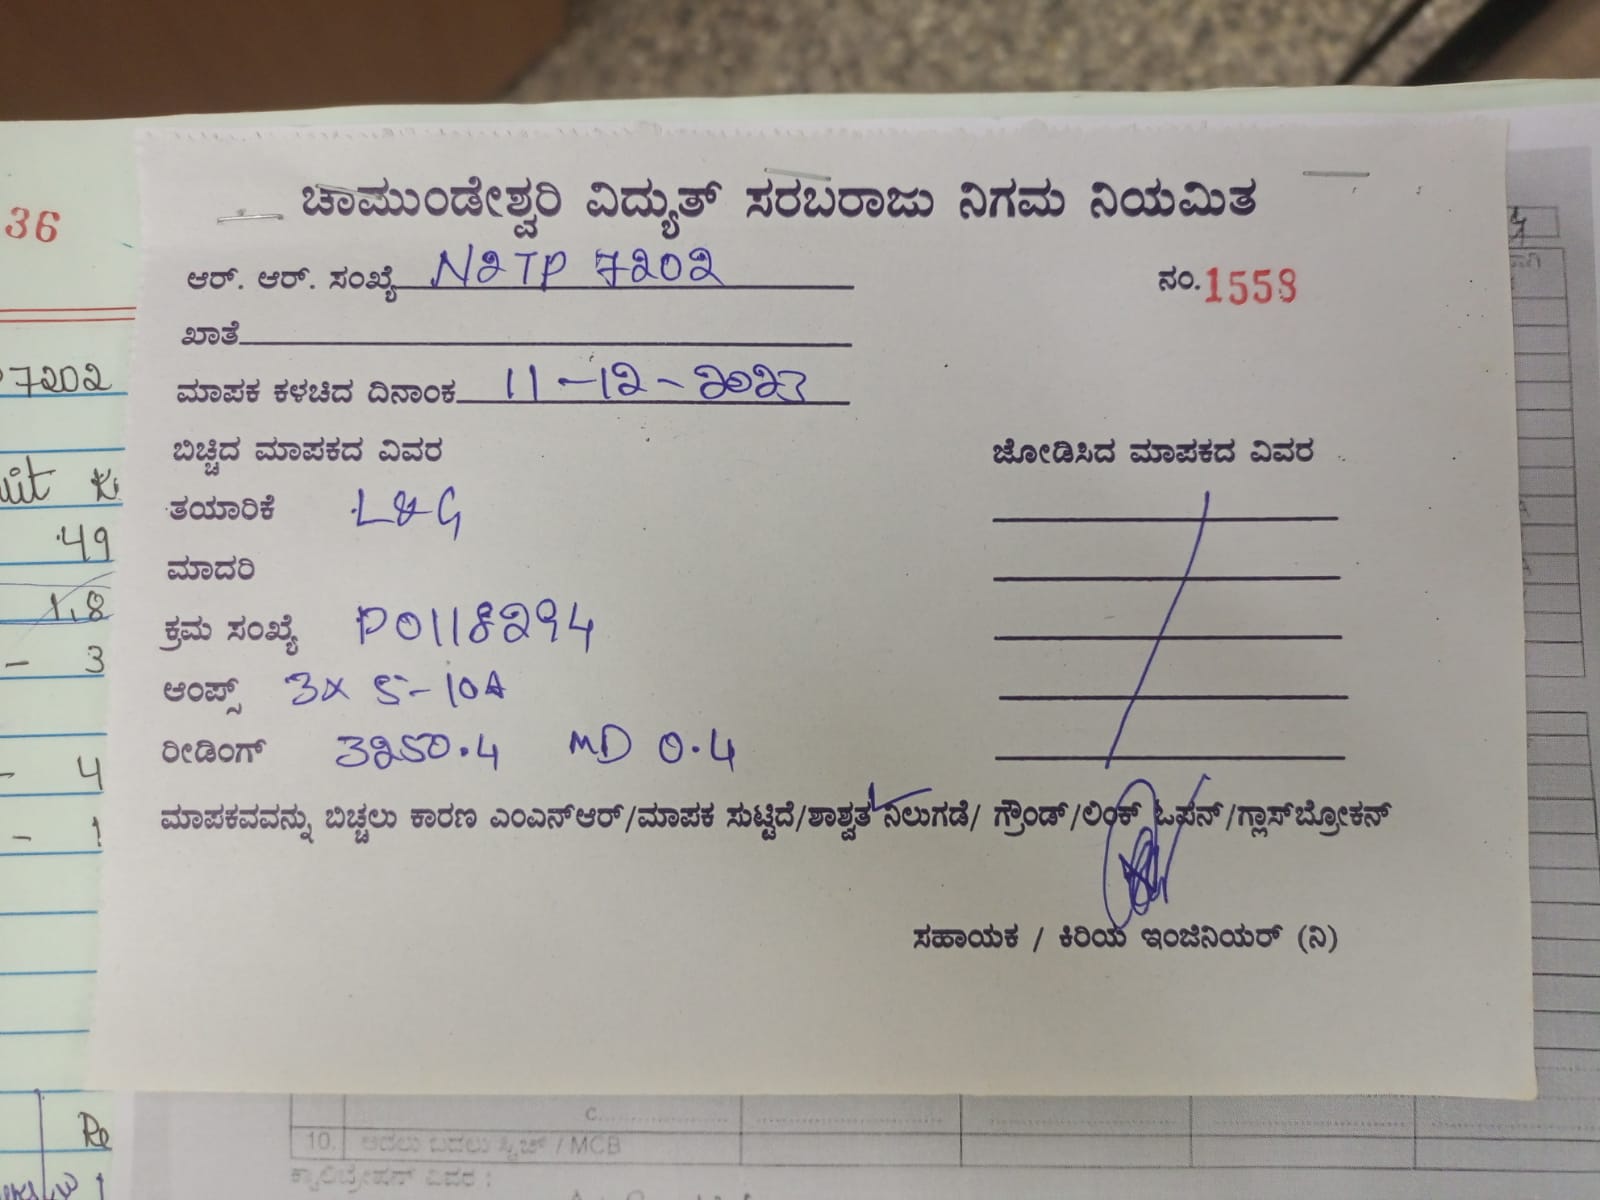 ಚಾಮುಂಡೇಶ್ವರಿ ವಿದ್ಯುತ್ ಸರಬರಾಜು ನಿಗಮ ನಿಯಮಿತ
36
ಆರ್. ಆರ್. ಸಂಖ್ಯೆ N2TP 7202
ನಂ.1558
ಖಾತೆ
7202
ಮಾಪಕ ಕಳಚಿದ ದಿನಾಂಕ 11-12-2023
ಬಿಚ್ಚಿದ ಮಾಪಕದ ವಿವರ
ಜೋಡಿಸಿದ ಮಾಪಕದ ವಿವರ
ತಯಾರಿಕೆ L&G
49
ಮಾದರಿ
1.8
ಕ್ರಮ ಸಂಖ್ಯೆ P0118294
- 3
ಆಂಪ್ಸ್ 3x 5-10A
ರೀಡಿಂಗ್ 3250.4 MD 0.4
- 4
ಮಾಪಕವವನ್ನು ಬಿಚ್ಚಲು ಕಾರಣ ಎಂಎನ್ಆರ್/ಮಾಪಕ ಸುಟ್ಟಿದೆ/ಶಾಶ್ವತ ನಿಲುಗಡೆ/ ಗ್ರೌಂಡ್/ಲಿಂಕ್ ಓಪನ್/ಗ್ಲಾಸ್‌ಬ್ರೋಕನ್
- 1
ಸಹಾಯಕ / ಕಿರಿಯ ಇಂಜಿನಿಯರ್ (ನಿ)
C
10. ಅದಲು ಬದಲು ಸ್ವಿಚ್ / MCB
ಕ್ಯಾಲಿಬ್ರೇಷನ್ ವಿವರ :